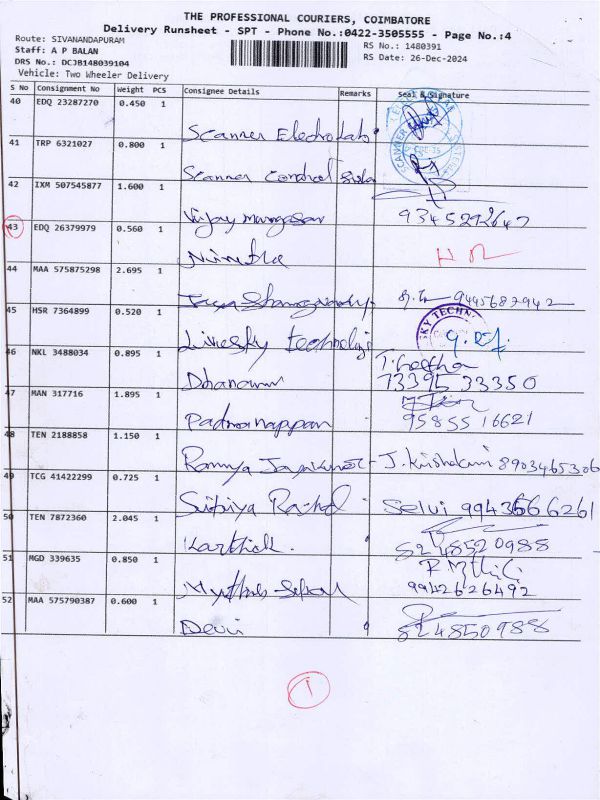 THE PROFESSIONAL COURIERS, COIMBATORE
Delivery Runsheet - SPT - Phone No.:0422-3505555 - Page No.:4
Route: SIVANANDAPURAM
RS No.: 1480391
Staff: A P BALAN
RS Date: 26-Dec-2024
DRS No.: DCJB148039104
Vehicle: Two Wheeler Delivery
S No Consignment No Weight PCS Consignee Details Remarks Seal & Signature
40 EDQ 23287270 0.450 1
Scanner Electro Labs
41 TRP 6321027 0.800 1
Scanner Control
42 IXM 507545877 1.600 1
Vijay
43 EDQ 26379979 0.560 1
Nimitha
44 MAA 575875298 2.695 1
9445682942
45 HSR 7364899 0.520 1
SKY TECHN
Livesky
46 NKL 3488034 0.895 1
T. Geetha
73395 33350
47 MAN 317716 1.895 1
Padmanappan 95855 16621
48 TEN 2188858 1.150 1
Ramya 8903465306
49 TCG 41422299 0.725 1
Selvi
50 TEN 7872360 2.045 1
Karthick. 8248520988
51 MGD 339635 0.850 1
9942626492
52 MAA 575790387 0.600 1
Devi 824850988
1